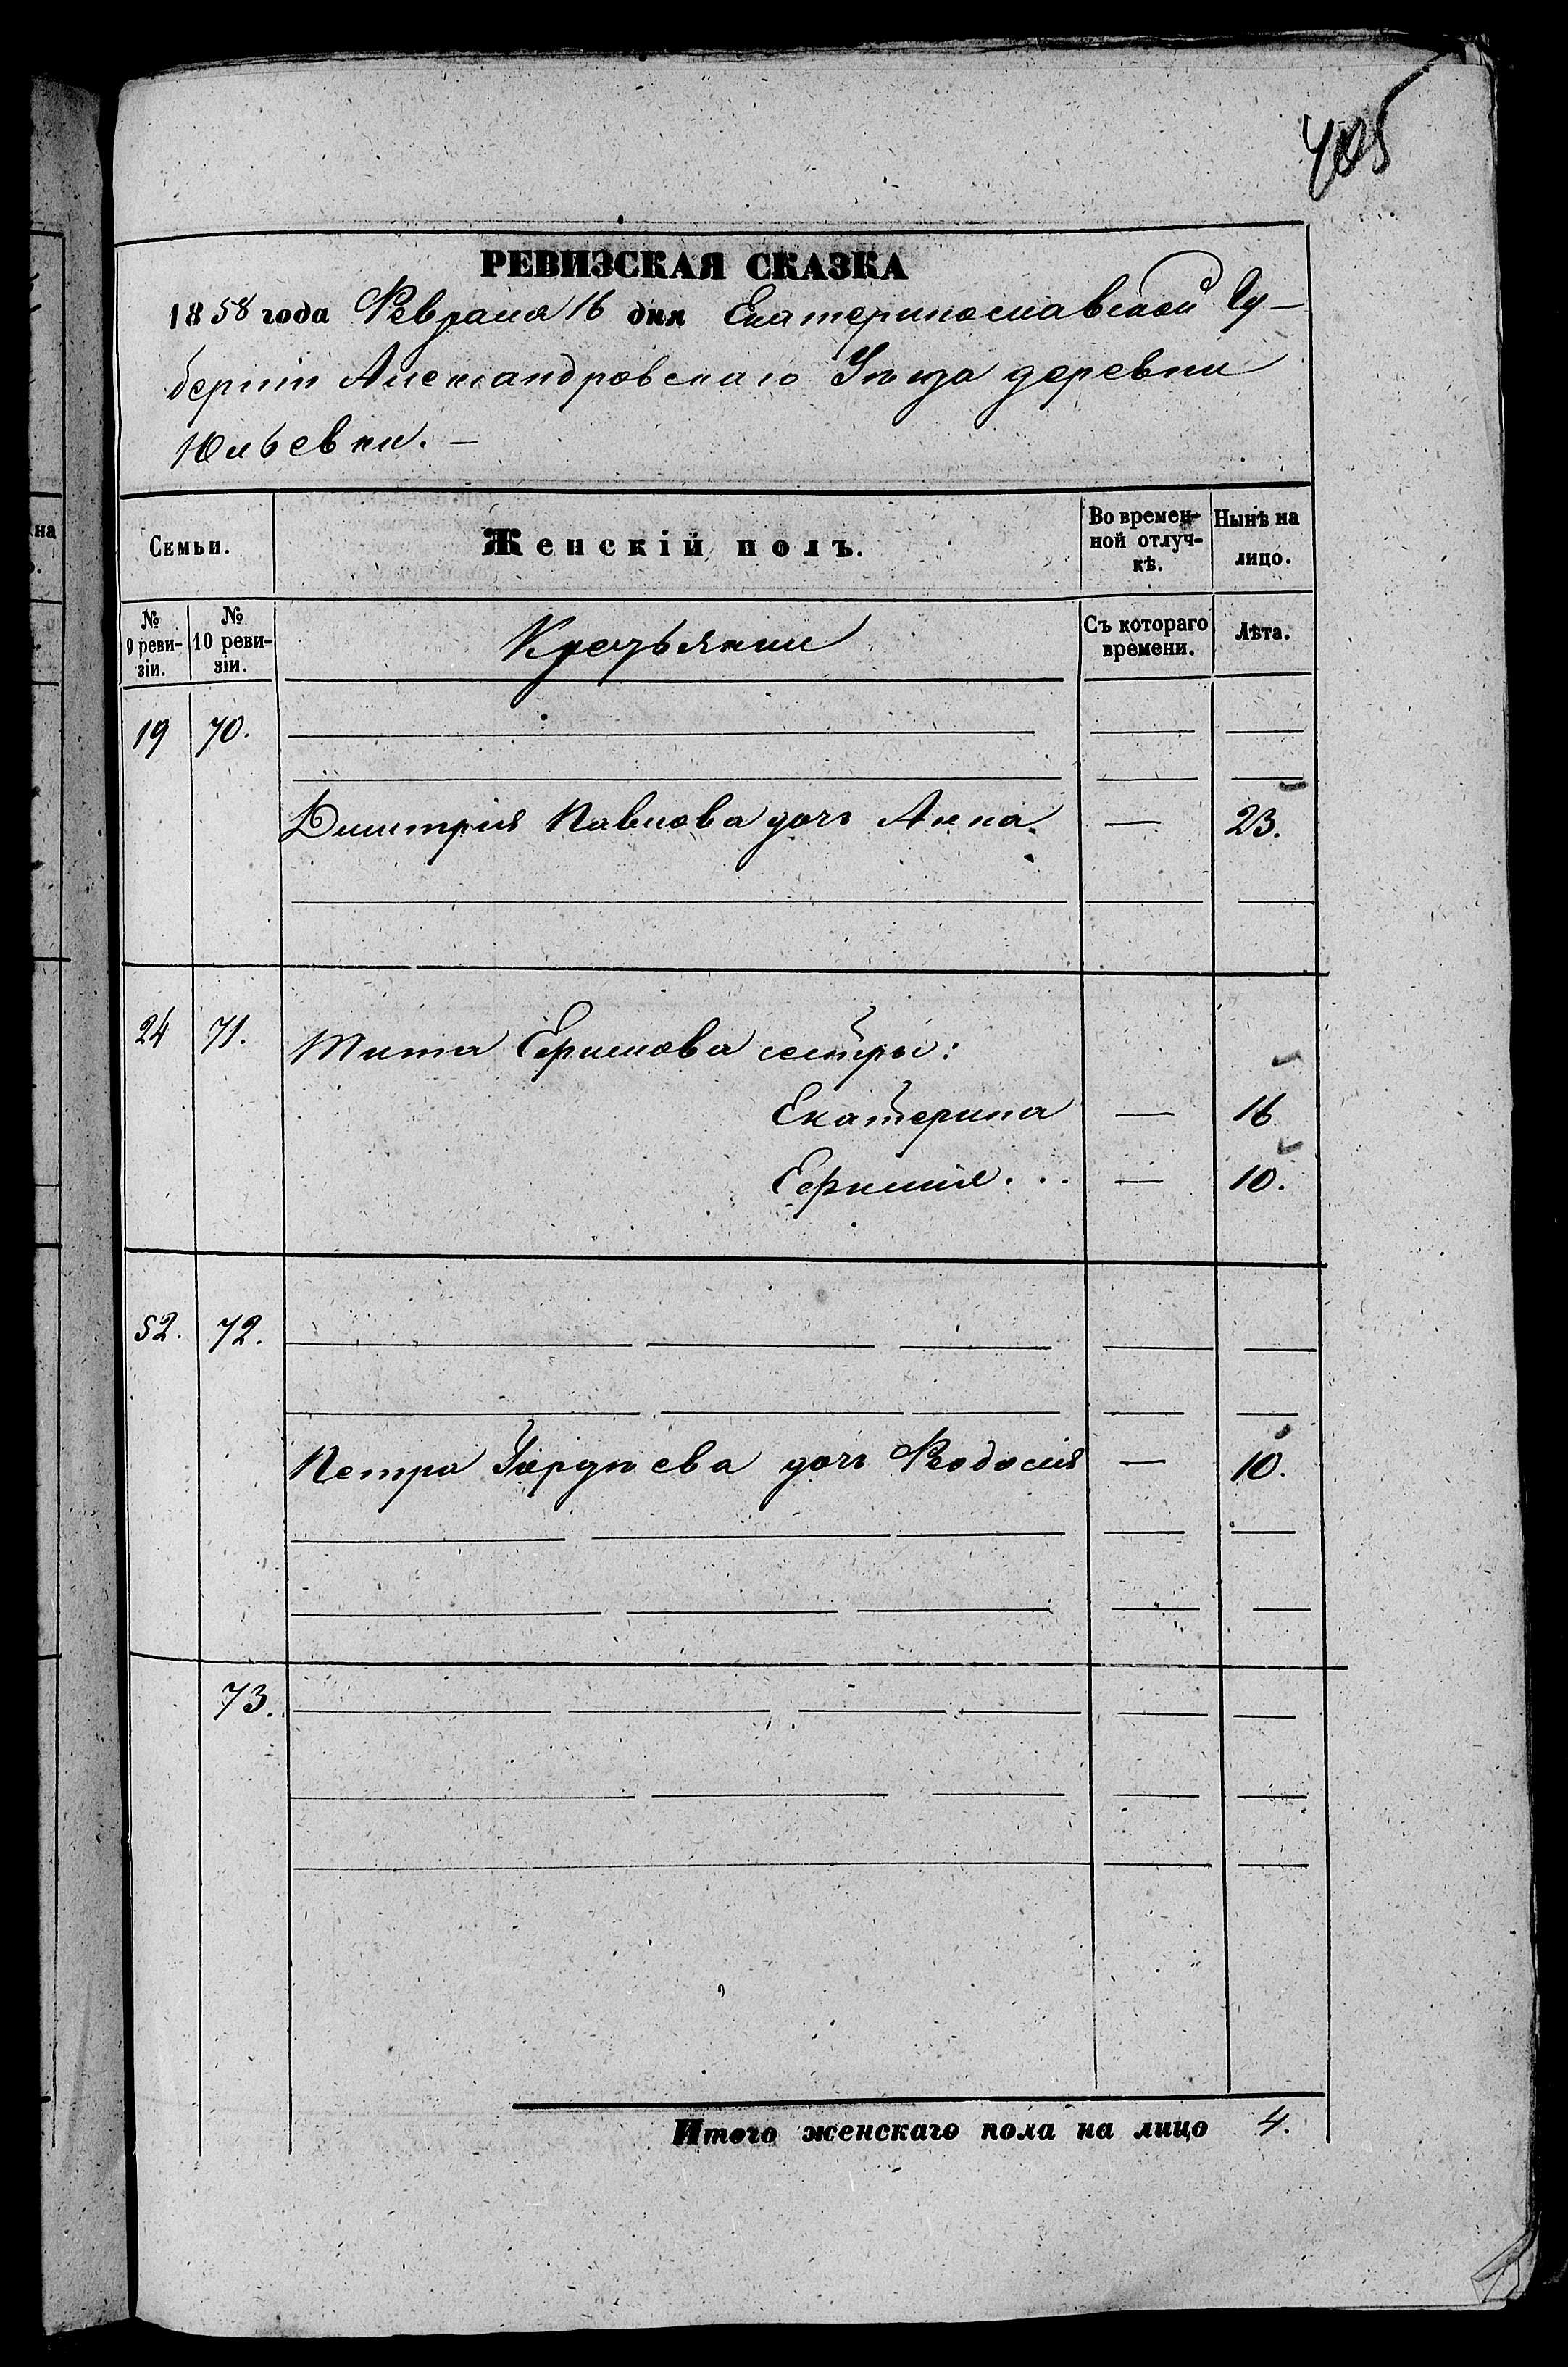 405
РЕВИЗСКАЯ СКАЗКА
1858 года Февраля 16 дня Екатеринославской Гу-
берніи Александровскаго Уѣзда деревни
Юльевки. —
на
Семьи.
Женскій полъ.
Во времен-
ной отлуч-
кѣ.
Нынѣ на
лицо.
№
9 реви-
зіи.
№
10 реви-
зіи.
Крестьянки
Съ котораго
времени.
Лѣта.
19 70.
Димитрія Павлова дочь Анна. — 23.
24 71. Тита Ефимова сестры:
Екатерина — 16
Ефимія... — 10.
52. 72.
Петра дочь Феодосія — 10.
73.
Итого женскаго пола на лицо 4.